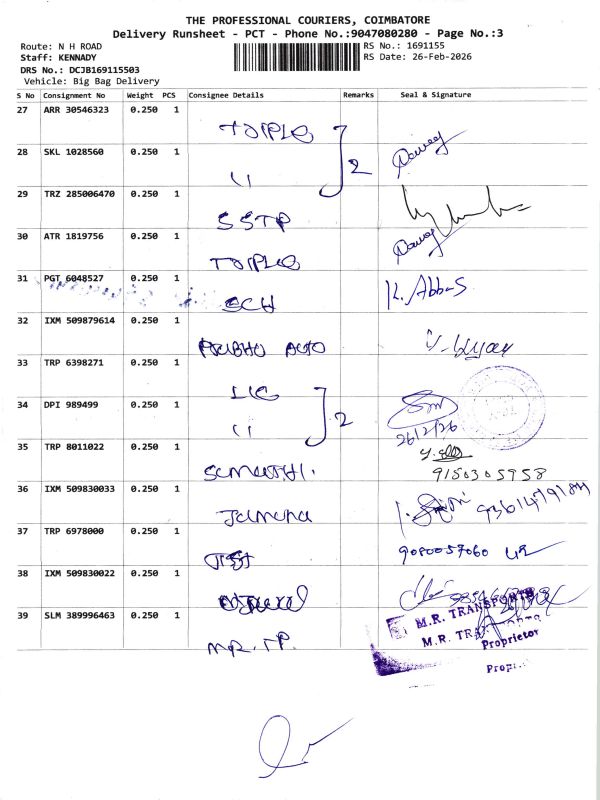 THE PROFESSIONAL COURIERS, COIMBATORE
Delivery Runsheet - PCT - Phone No.:9047080280 - Page No.:3
Route: N H ROAD
RS No.: 1691155
Staff: KENNADY
RS Date: 26-Feb-2026
DRS No.: DCJB169115503
Vehicle: Big Bag Delivery
S No Consignment No Weight PCS Consignee Details Remarks Seal & Signature
27 ARR 30546323 0.250 1
28 SKL 1028560 0.250 1 2
29 TRZ 285006470 0.250 1 SSTP
30 ATR 1819756 0.250 1
31 PGT 6048527 0.250 1 SCH K. Abbas
32 IXM 509879614 0.250 1 PRUBHU AUTO
33 TRP 6398271 0.250 1 LIC
34 DPI 989499 0.250 1 2 26/2/26
35 TRP 8011022 0.250 1 SUMATHI. 9150305958
36 IXM 509830033 0.250 1 Jamuna
37 TRP 6978000 0.250 1 9080057060
38 IXM 509830022 0.250 1
39 SLM 389996463 0.250 1 MR. TP.
M.R. TRANSPORTS
M.R. TRANSPORTS
Proprietor